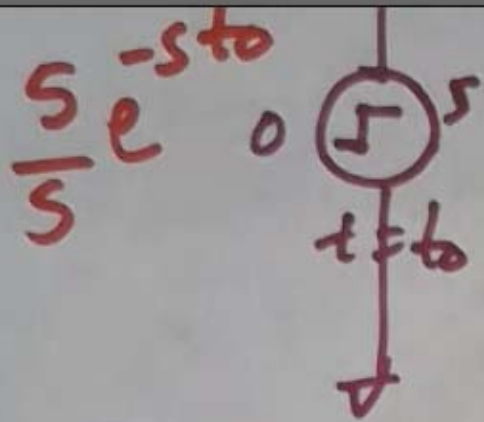 5/s e^-st₀
0 5
t = t₀